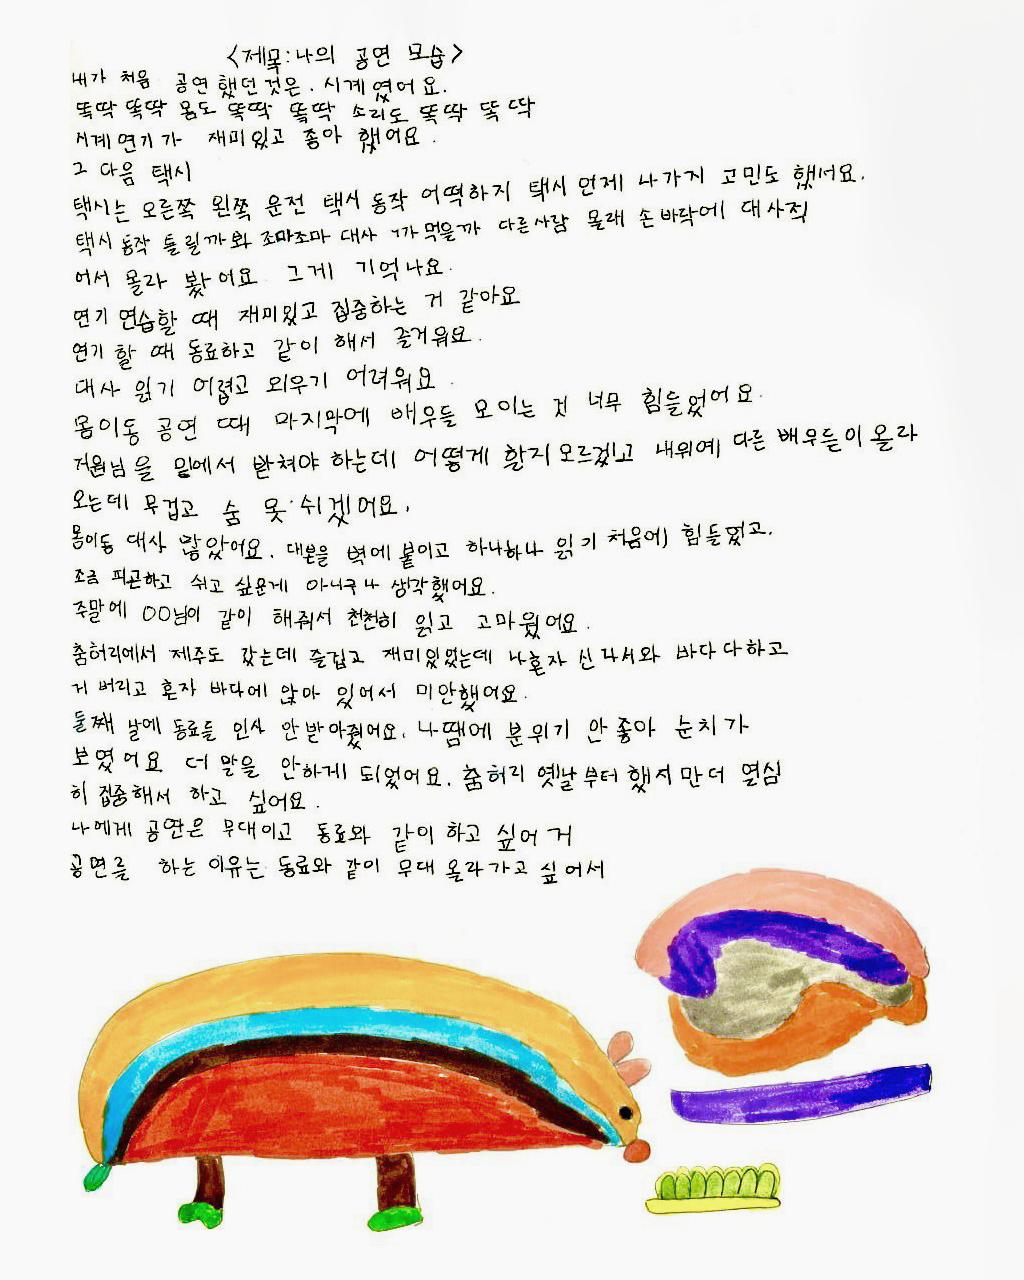 <제목:나의 공연 모습>
내가 처음 공연 했던 것은. 시계 였어요.
뚝딱 뚝딱 몸도 뚝딱 뚝딱 소리도 뚝딱 뚝딱
시계 연기가 재미있고 좋아 했어요.
그 다음 택시
택시는 오른쪽 왼쪽 운전 택시 동작 어떡하지 택시 언제 나가지 고민도 했어요.
택시 동작 틀릴까봐 조마조마 대사 까먹을까 다른사람 몰래 손바닥에 대사적
어서 몰라 봤어요 그게 기억나요.
연기 연습할 때 재미있고 집중하는 거 같아요
연기 할 때 동료하고 같이 해서 즐거워요.
대사 읽기 어렵고 외우기 어려워요.
몸이동 공연 때 마지막에 배우들 모이는 것 너무 힘들었어요.
거원님을 밑에서 받쳐야 하는데 어떻게 할지 모르겠고 내위에 다른 배우들이 올라
오는데 무겁고 숨 못 쉬겠어요.
몸이동 대사 많았어요. 대본을 벽에 붙이고 하나하나 읽기 처음에 힘들었고.
조금 피곤하고 쉬고 싶은게 아니구나 생각했어요.
주말에 OO님이 같이 해줘서 천천히 읽고 고마웠어요.
춤허리에서 제주도 갔는데 즐겁고 재미있었는데 나혼자 신나서와 바다다하고
거 버리고 혼자 바다에 앉아 있어서 미안했어요.
둘째 날에 동료들 인사 안받아줬어요. 나땜에 분위기 안좋아 눈치가
보였어요 더 말을 안하게 되었어요. 춤허리 옛날부터 했지만 더 열심
히 집중해서 하고 싶어요.
나에게 공연은 무대이고 동료와 같이 하고 싶어 거
공연를 하는 이유는 동료와 같이 무대 올라가고 싶어서